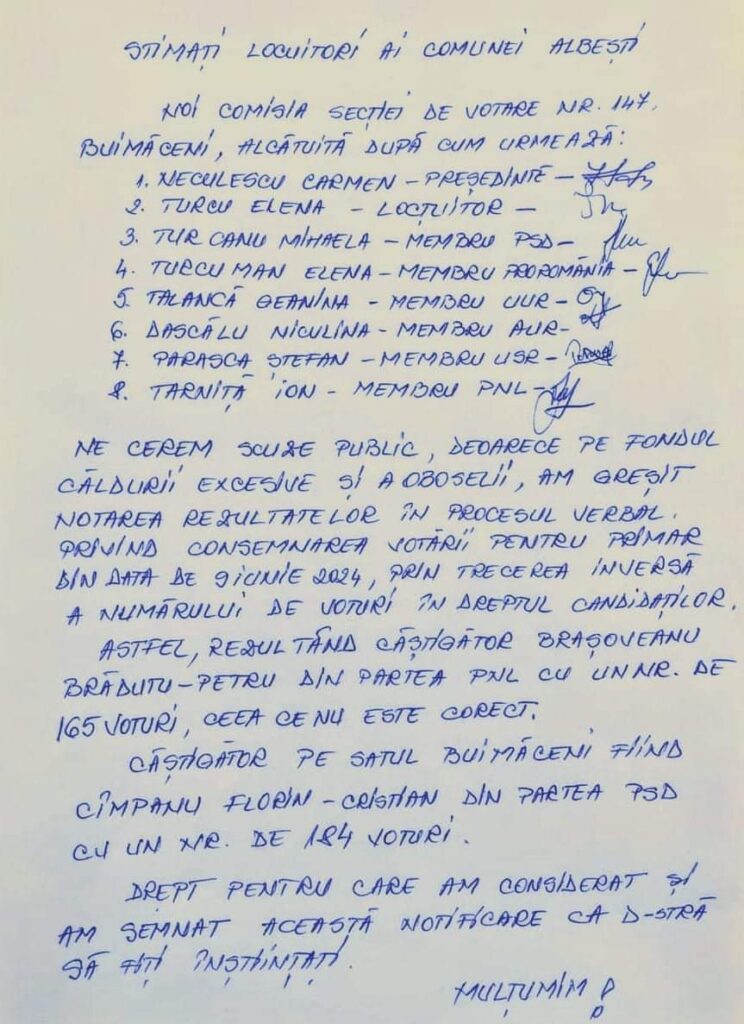 STIMAȚI LOCUITORI AI COMUNEI ALBEȘTI
NOI COMISIA SECȚIEI DE VOTARE NR. 147,
BUIMĂCENI, ALCĂTUITĂ DUPĂ CUM URMEAZĂ:
1. NECULESCU CARMEN – PREȘEDINTE –
2. TURCU ELENA – LOCȚIITOR –
3. TURCANU MIHAELA – MEMBRU PSD –
4. TURCUMAN ELENA – MEMBRU PROROMÂNIA –
5. TALANCĂ GEANINA – MEMBRU UUR –
6. DASCĂLU NICULINA – MEMBRU AUR –
7. PARASCA ȘTEFAN – MEMBRU USR –
8. TARNIȚĂ ION – MEMBRU PNL –
NE CEREM SCUZE PUBLIC, DEOARECE PE FONDUL
CĂLDURII EXCESIVE ȘI A OBOSELII, AM GREȘIT
NOTAREA REZULTATELOR ÎN PROCESUL VERBAL.
PRIVIND CONSEMNAREA VOTĂRII PENTRU PRIMAR
DIN DATA DE 9 IUNIE 2024, PRIN TRECEREA INVERSĂ
A NUMĂRULUI DE VOTURI ÎN DREPTUL CANDIDAȚILOR.
ASTFEL, REZULTÂND CÂȘTIGĂTOR BRAȘOVEANU
BRĂDUTU-PETRU DIN PARTEA PNL CU UN NR. DE
165 VOTURI, CEEA CE NU ESTE CORECT.
CÂȘTIGĂTOR PE SATUL BUIMĂCENI FIIND
CÎMPANU FLORIN-CRISTIAN DIN PARTEA PSD
CU UN NR. DE 184 VOTURI.
DREPT PENTRU CARE AM CONSIDERAT ȘI
AM SEMNAT ACEASTĂ NOTIFICARE CA D-STRĂ
SĂ FIȚI ÎNȘTIINȚAȚI.
MULȚUMIM!